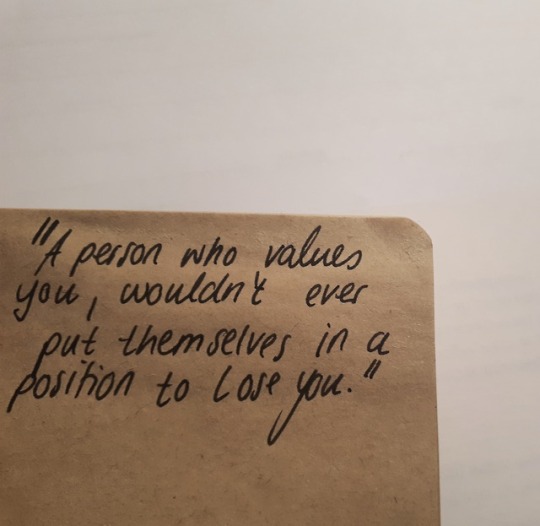 "A person who values
you, wouldn't ever
put themselves in a
position to lose you."